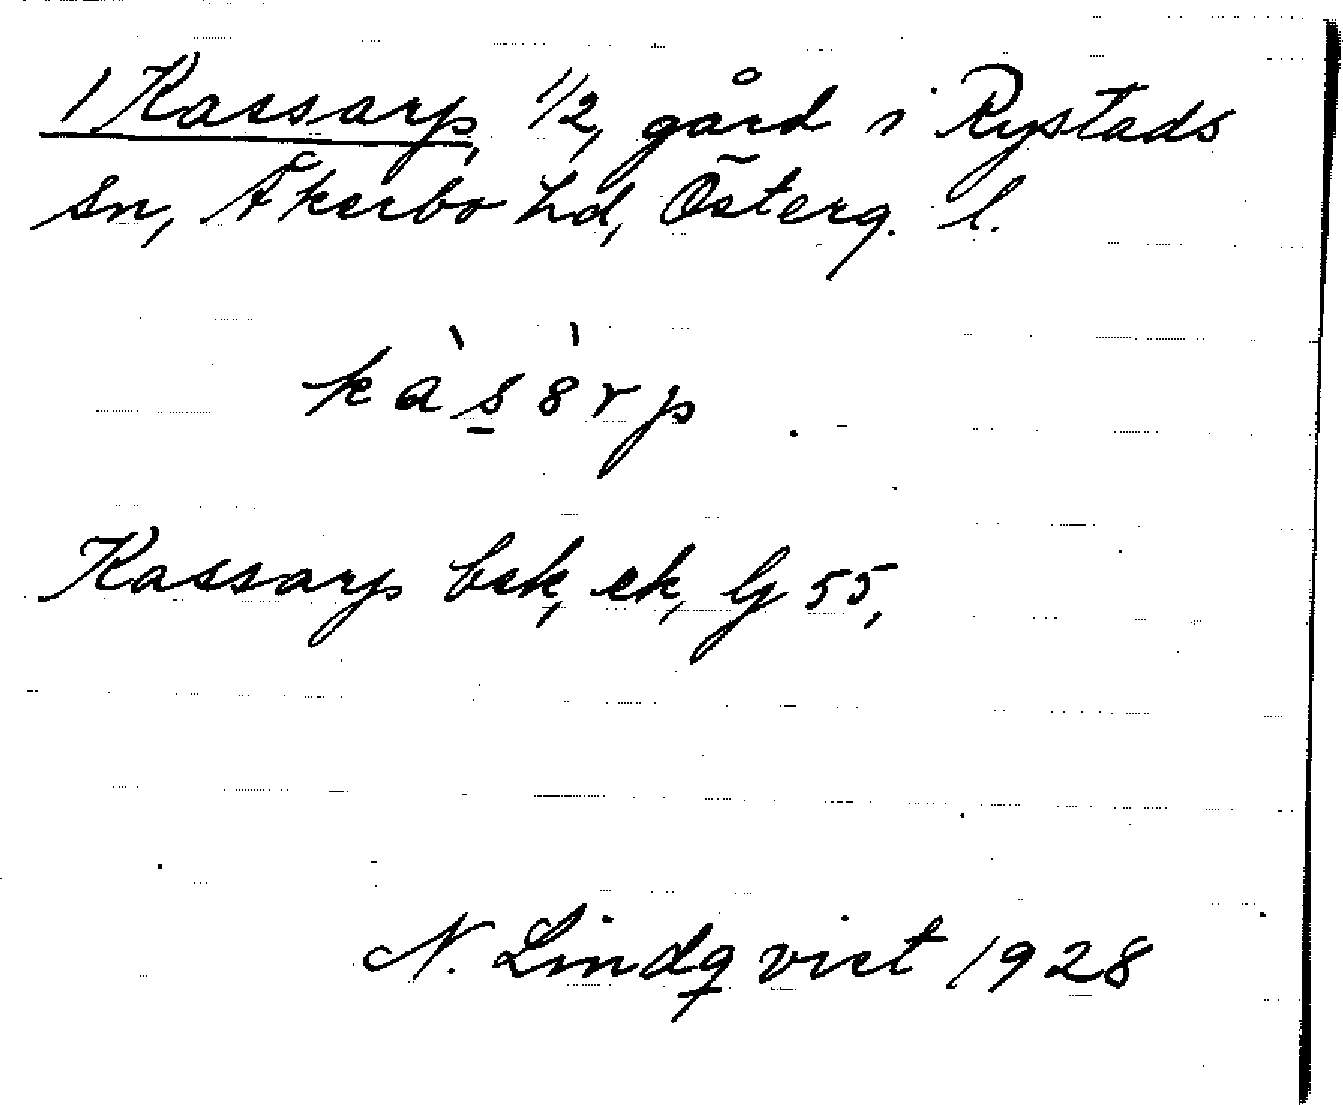 1 Kassarp, 1/2, gård i Rystads
sn, Åkerbo hd, Österg. l.
kàs̲àrp.
Kassarp bek, ek, Lj 55,
N. Lindqvist 1928